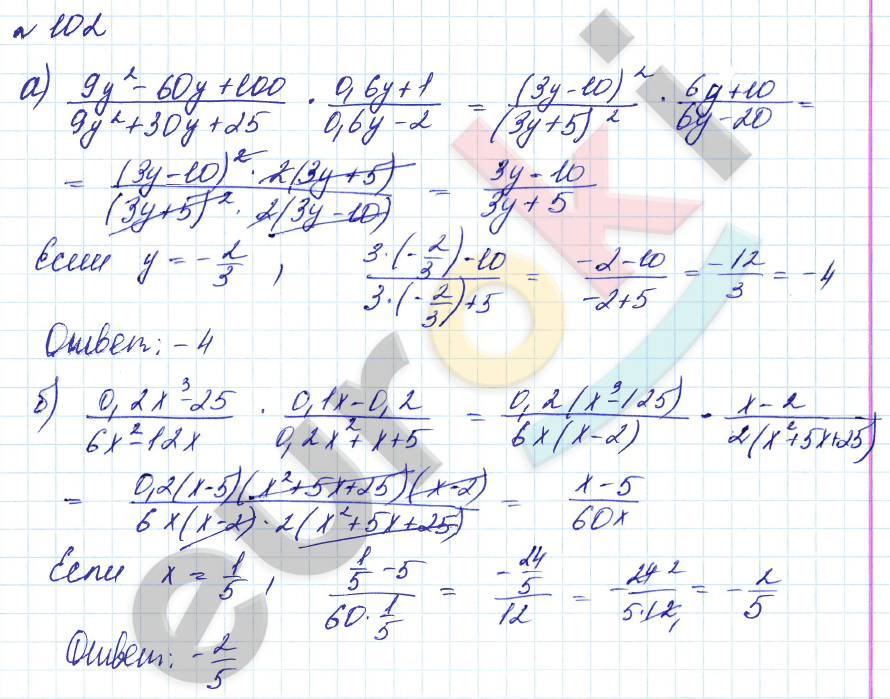 № 102
а) (9y² − 60y + 100)/(9y² + 30y + 25) · (0,6y + 1)/(0,6y − 2) = (3y − 10)²/(3y + 5)² · (6y + 10)/(6y − 20) =
= ((3y − 10)² · 2(3y + 5))/((3y + 5)² · 2(3y − 10)) = (3y − 10)/(3y + 5)
Если y = −2/3, (3·(−2/3) − 10)/(3·(−2/3) + 5) = (−2 − 10)/(−2 + 5) = −12/3 = −4
Ответ: −4
б) (0,2x³ − 25)/(6x² − 12x) · (0,1x − 0,2)/(0,2x² + x + 5) = (0,2(x³ − 125))/(6x(x − 2)) · (x − 2)/(2(x² + 5x + 25))
= (0,2(x − 5)(x² + 5x + 25)(x − 2))/(6x(x − 2) · 2(x² + 5x + 25)) = (x − 5)/(60x)
Если x = 1/5, (1/5 − 5)/(60 · 1/5) = (−24/5)/12 = −(24 2)/(5·12 1) = −2/5
Ответ: −2/5
euroki